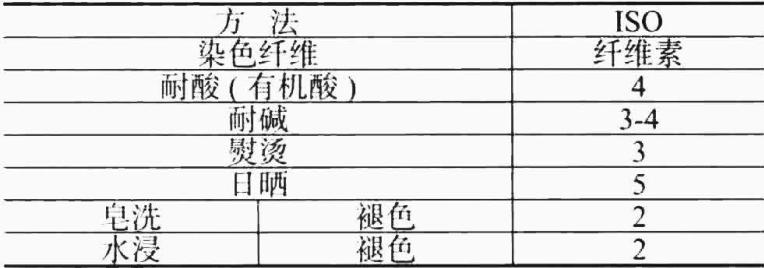 方 法 ISO
染色纤维 纤维素
耐酸(有机酸) 4
耐碱 3-4
熨烫 3
日晒 5
皂洗 褪色 2
水浸 褪色 2